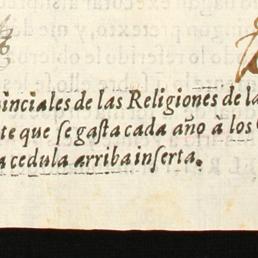 inciales de las Religiones de la
te que se gasta cada año à los
a cedula arriba inserta.